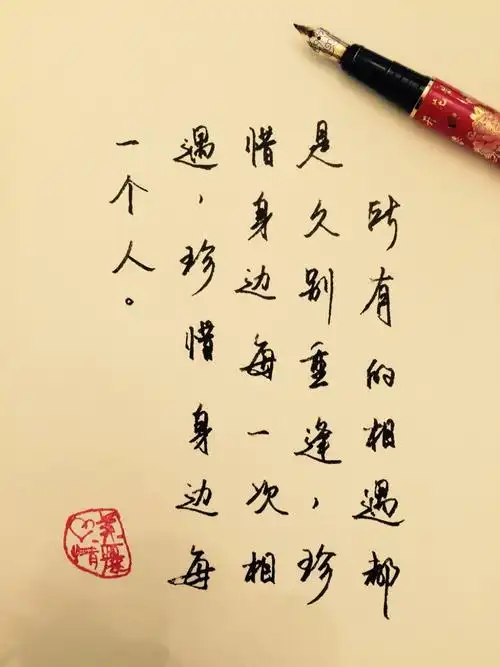 所有的相遇都
是久别重逢，珍
惜身边每一次相
遇，珍惜身边每
一个人。